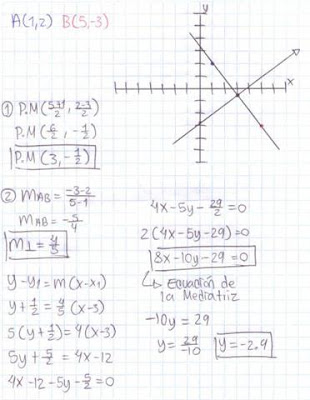 A(1,2) B(5,-3)
y
x
① P.M(5+1/2, 2-3/2)
P.M(6/2, -1/2)
P.M(3, -1/2)
② mAB = -3-2/5-1
mAB = -5/4
m⊥ = 4/5
y-y1 = m(x-x1)
y+1/2 = 4/5(x-3)
5(y+1/2) = 4(x-3)
5y+5/2 = 4x-12
4x-12-5y-5/2 = 0
4x-5y-29/2 = 0
2(4x-5y-29) = 0
8x-10y-29 = 0
↳ Ecuación de
la Mediatriz
-10y = 29
y = 29/-10 y = -2.9